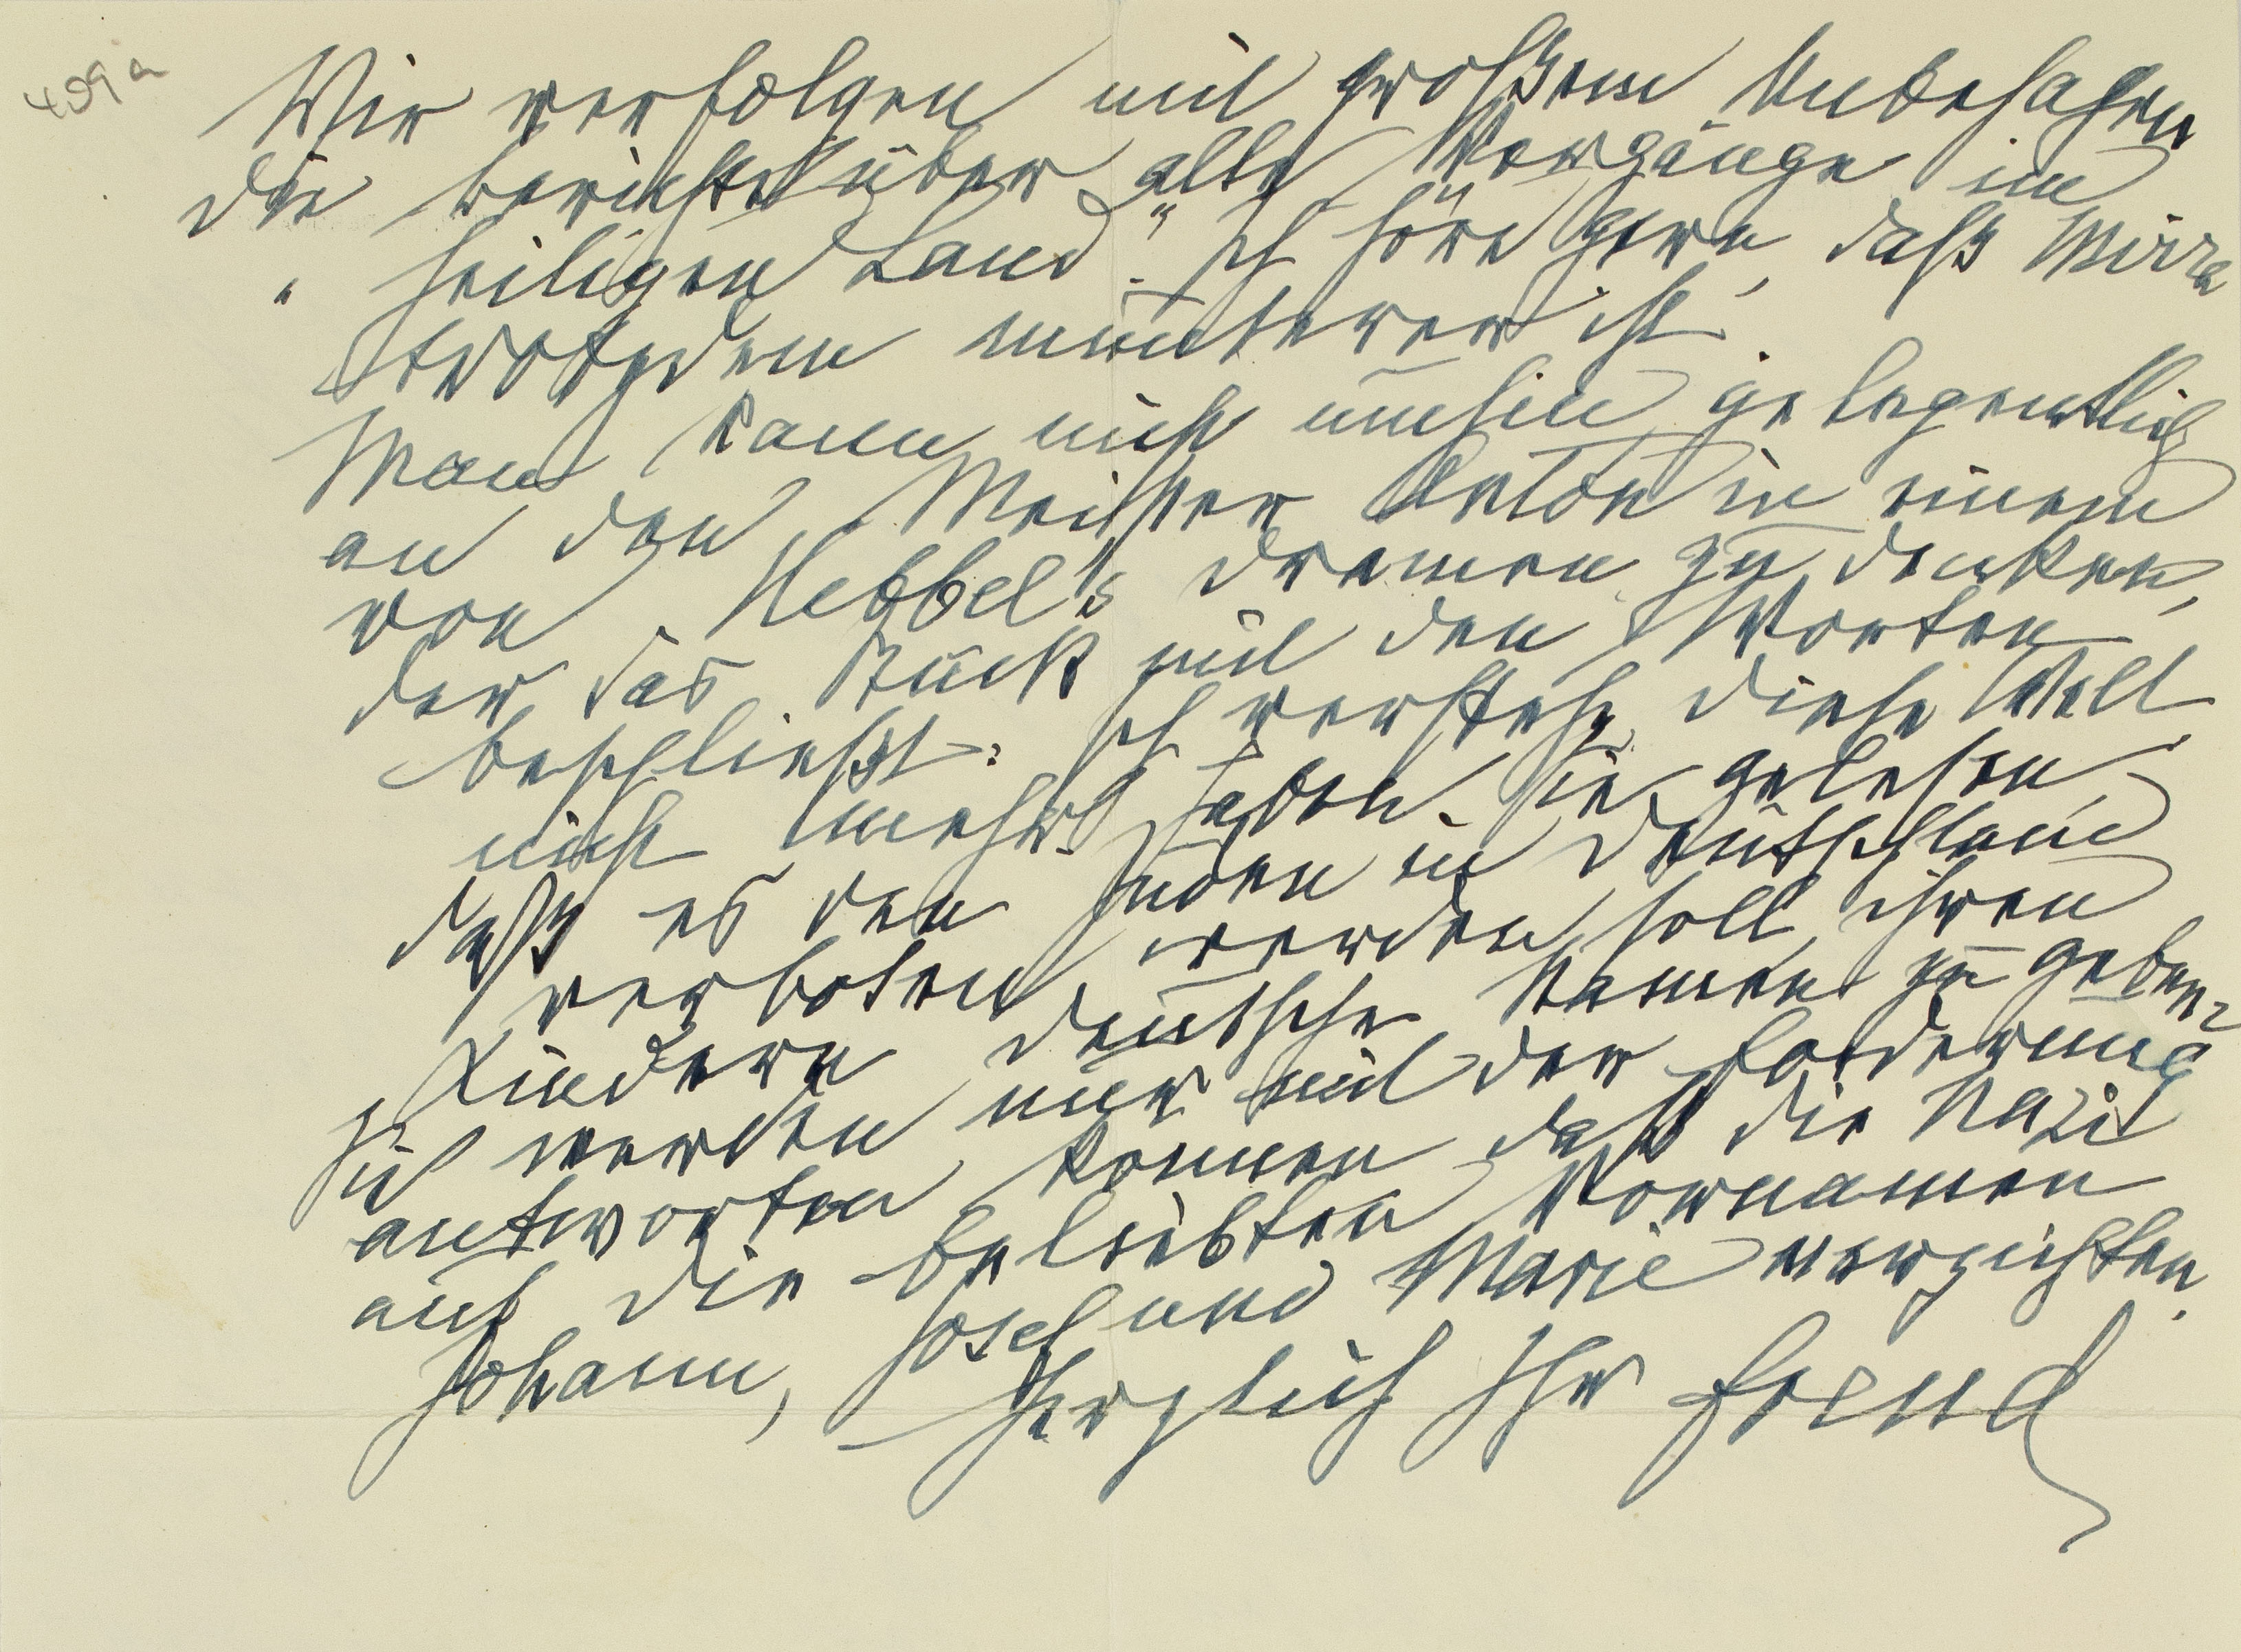 409a
Wir verfolgen mit großem Unbehagen
die berichte über alle Vorgänge im
„heiligen Land“. Ich höre gern, daß Mirra
trotzdem munterer ist.
Man kann nicht umhin gelegentlich
an den Meister Anton in einem
von Hebbel's dramen zu denken,
der das Stück mit den Worten
beschließt: Ich verstehe diese Welt
nicht mehr. Haben Sie gelesen,
daß es den Juden in Deutschland
verboten werden soll, ihren
Kindern deutsche Namen zu geben?
Sie werden nur mit der forderung
antworten können, daß die Nazi
auf die beliebten Vornamen
Johann, Josef und Marie verzichten.
Herzlich Ihr freud